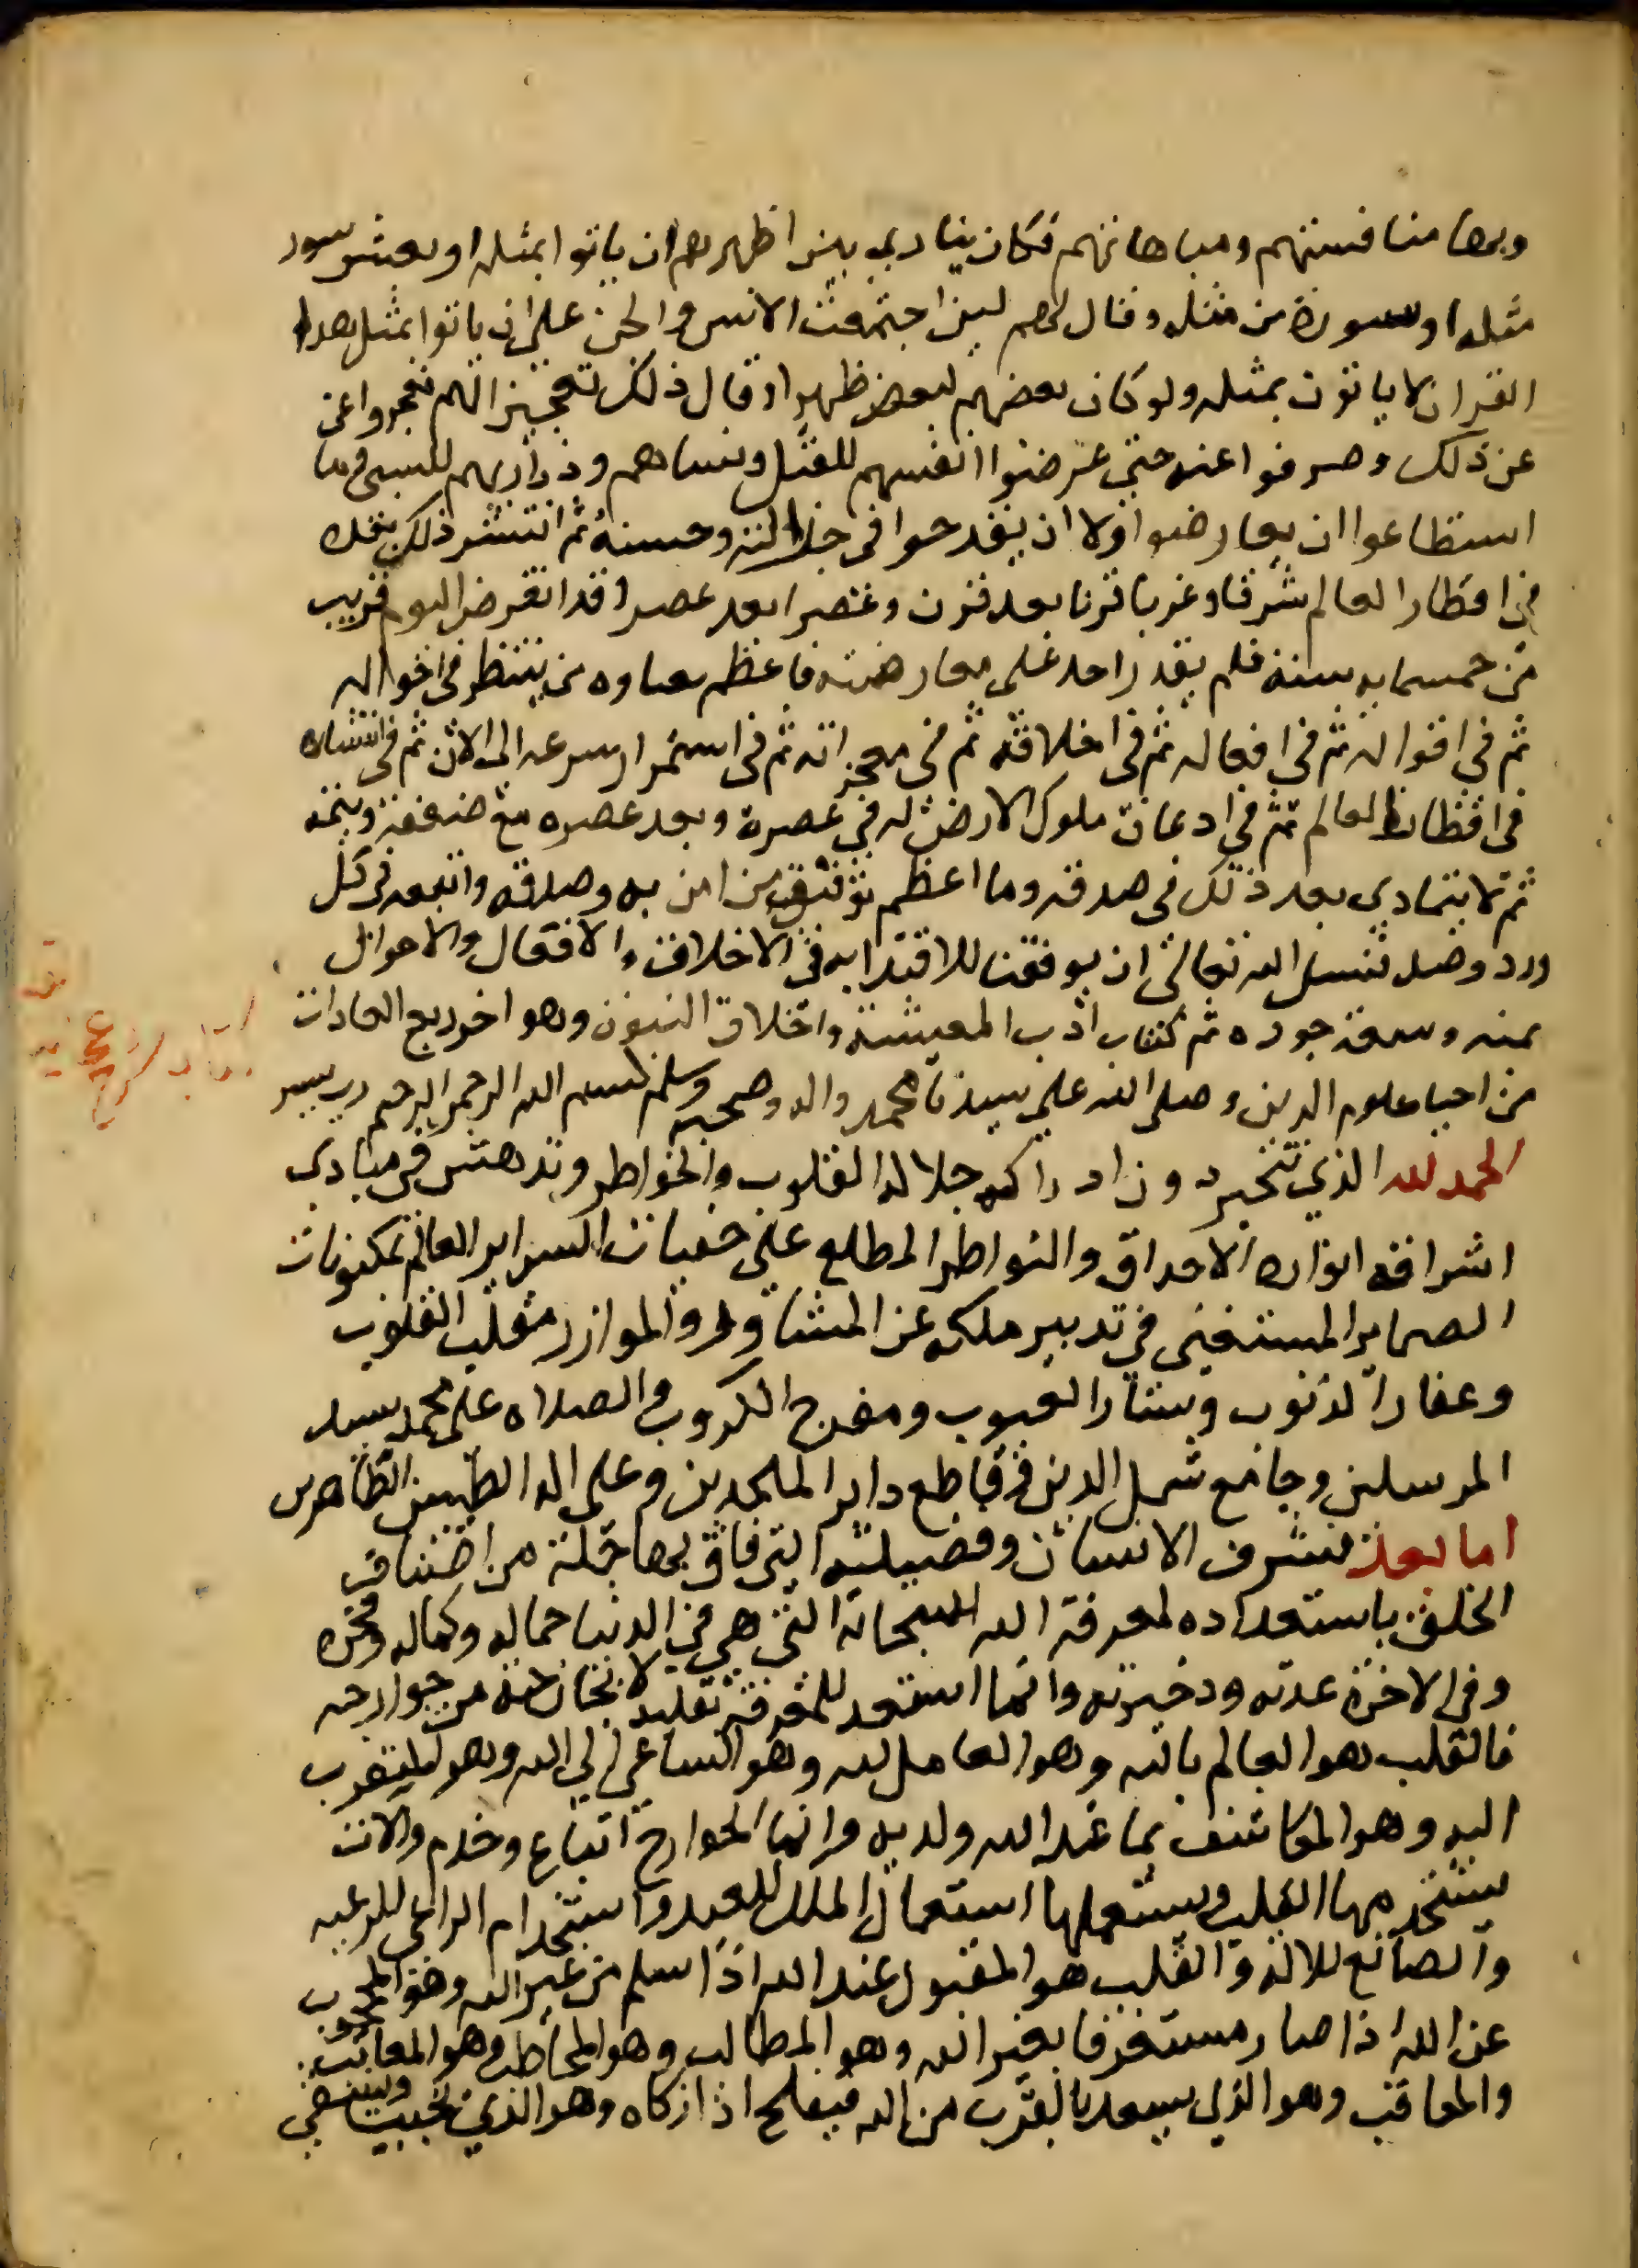 وبها منافستهم ومباهاتهم فكان ينادي بين اظهرهم ان ياتوا بمثله او بعشر سور
مثله او بسورة من مثله وقال لهم لين اجتمعت الانس والجن على ان ياتوا بمثل هدا
القران لا ياتون بمثله ولو كان بعضهم لبعض ظهيرا وقال ذلك تعجيزا لهم فعجزوا عن
عن ذلك وصرفوا عنه حتى عرضوا انفسهم للقتل ونساهم وذراريهم للسبي وما
استطاعوا ان يعارضوا ولا ان يقدحوا في جزالته وحسنه ثم انتشر ذلك بعده
في اقطار العالم شرقا وغربا قرنا بعد قرن وعصرا بعد عصر وقد انقرض اليوم قريب
من خمسمايه سنة فلم يقدر احد على معارضته فاعظم بغباوه من ينظر في احواله
ثم في اقواله ثم في افعاله ثم في اخلاقه ثم في معجزاته ثم في استمرار سرعه الى الان ثم في انتشاره
في اقطار العالم ثم في ادعان ملوك الارض له في عصره وبعد عصره مع ضعفه ويتمه
ثم لا يتمادي بعد ذلك في صدقه وما اعظم توفيق من امن به وصدقه واتبعه في كل
ورد وصدر نسل الله تعالى ان يوفقنا للاقتدا به في الاخلاق والافعال والاحوال
بمنه وسعة جوده تم كتاب اذب المعيشة واخلاق النبوه وهو اخر ربع العادات
من احيا علوم الدين وصلى الله على سيدنا محمد واله وصحبه وسلم بسم الله الرحمن الرحيم رب يسر
الحمد لله الذي تتحير دون ادراك جلاله القلوب والخواطر وتدهش في مبادي
اشراقه انواره الاحداق والنواظر المطلع على خفيات السراير العالم بمكنونات
الضماير المستغني في تدبير ملكه عن المشاور والموازر مقلب القلوب
وغفار الذنوب وستار العيوب ومفرج الكروب والصلاه على محمد سيد
المرسلين وجامع شمل الدين وقاطع دابر الملحدين وعلى اله الطيبين الطاهرين
اما بعد فشرف الانسان وفضيلته التي فاق بها جملة من اصناف
الخلق باستعداده لمعرفة الله سبحانه التي هي في الدنيا جماله وكماله وفخره
وفي الاخرة عدته وذخيرته وانما استعد للمعرفة بقلبه لا بجارحة من جوارحه
فالقلب هو العالم بالله وهو العامل لله وهو الساعي الي الله وهو المتقرب
اليه وهو المكاشف بما عند الله ولديه وانما الجوارح اتباع وخدم والات
يستخدمها القلب ويستعملها استعمال الملك للعبد واستخدام الراعي للرعيه
والصانع للالة والقلب هو المقبول عند الله اذا سلم من غير الله وهو المحجوب
عن الله اذا صار مستغرقا بغير الله وهو المطالب وهو المخاطب وهو المعاتب
والمعاقب وهو الذي يسعد بالقرب من الله فيفلح اذا زكاه وهو الذي يخيب ويشقي